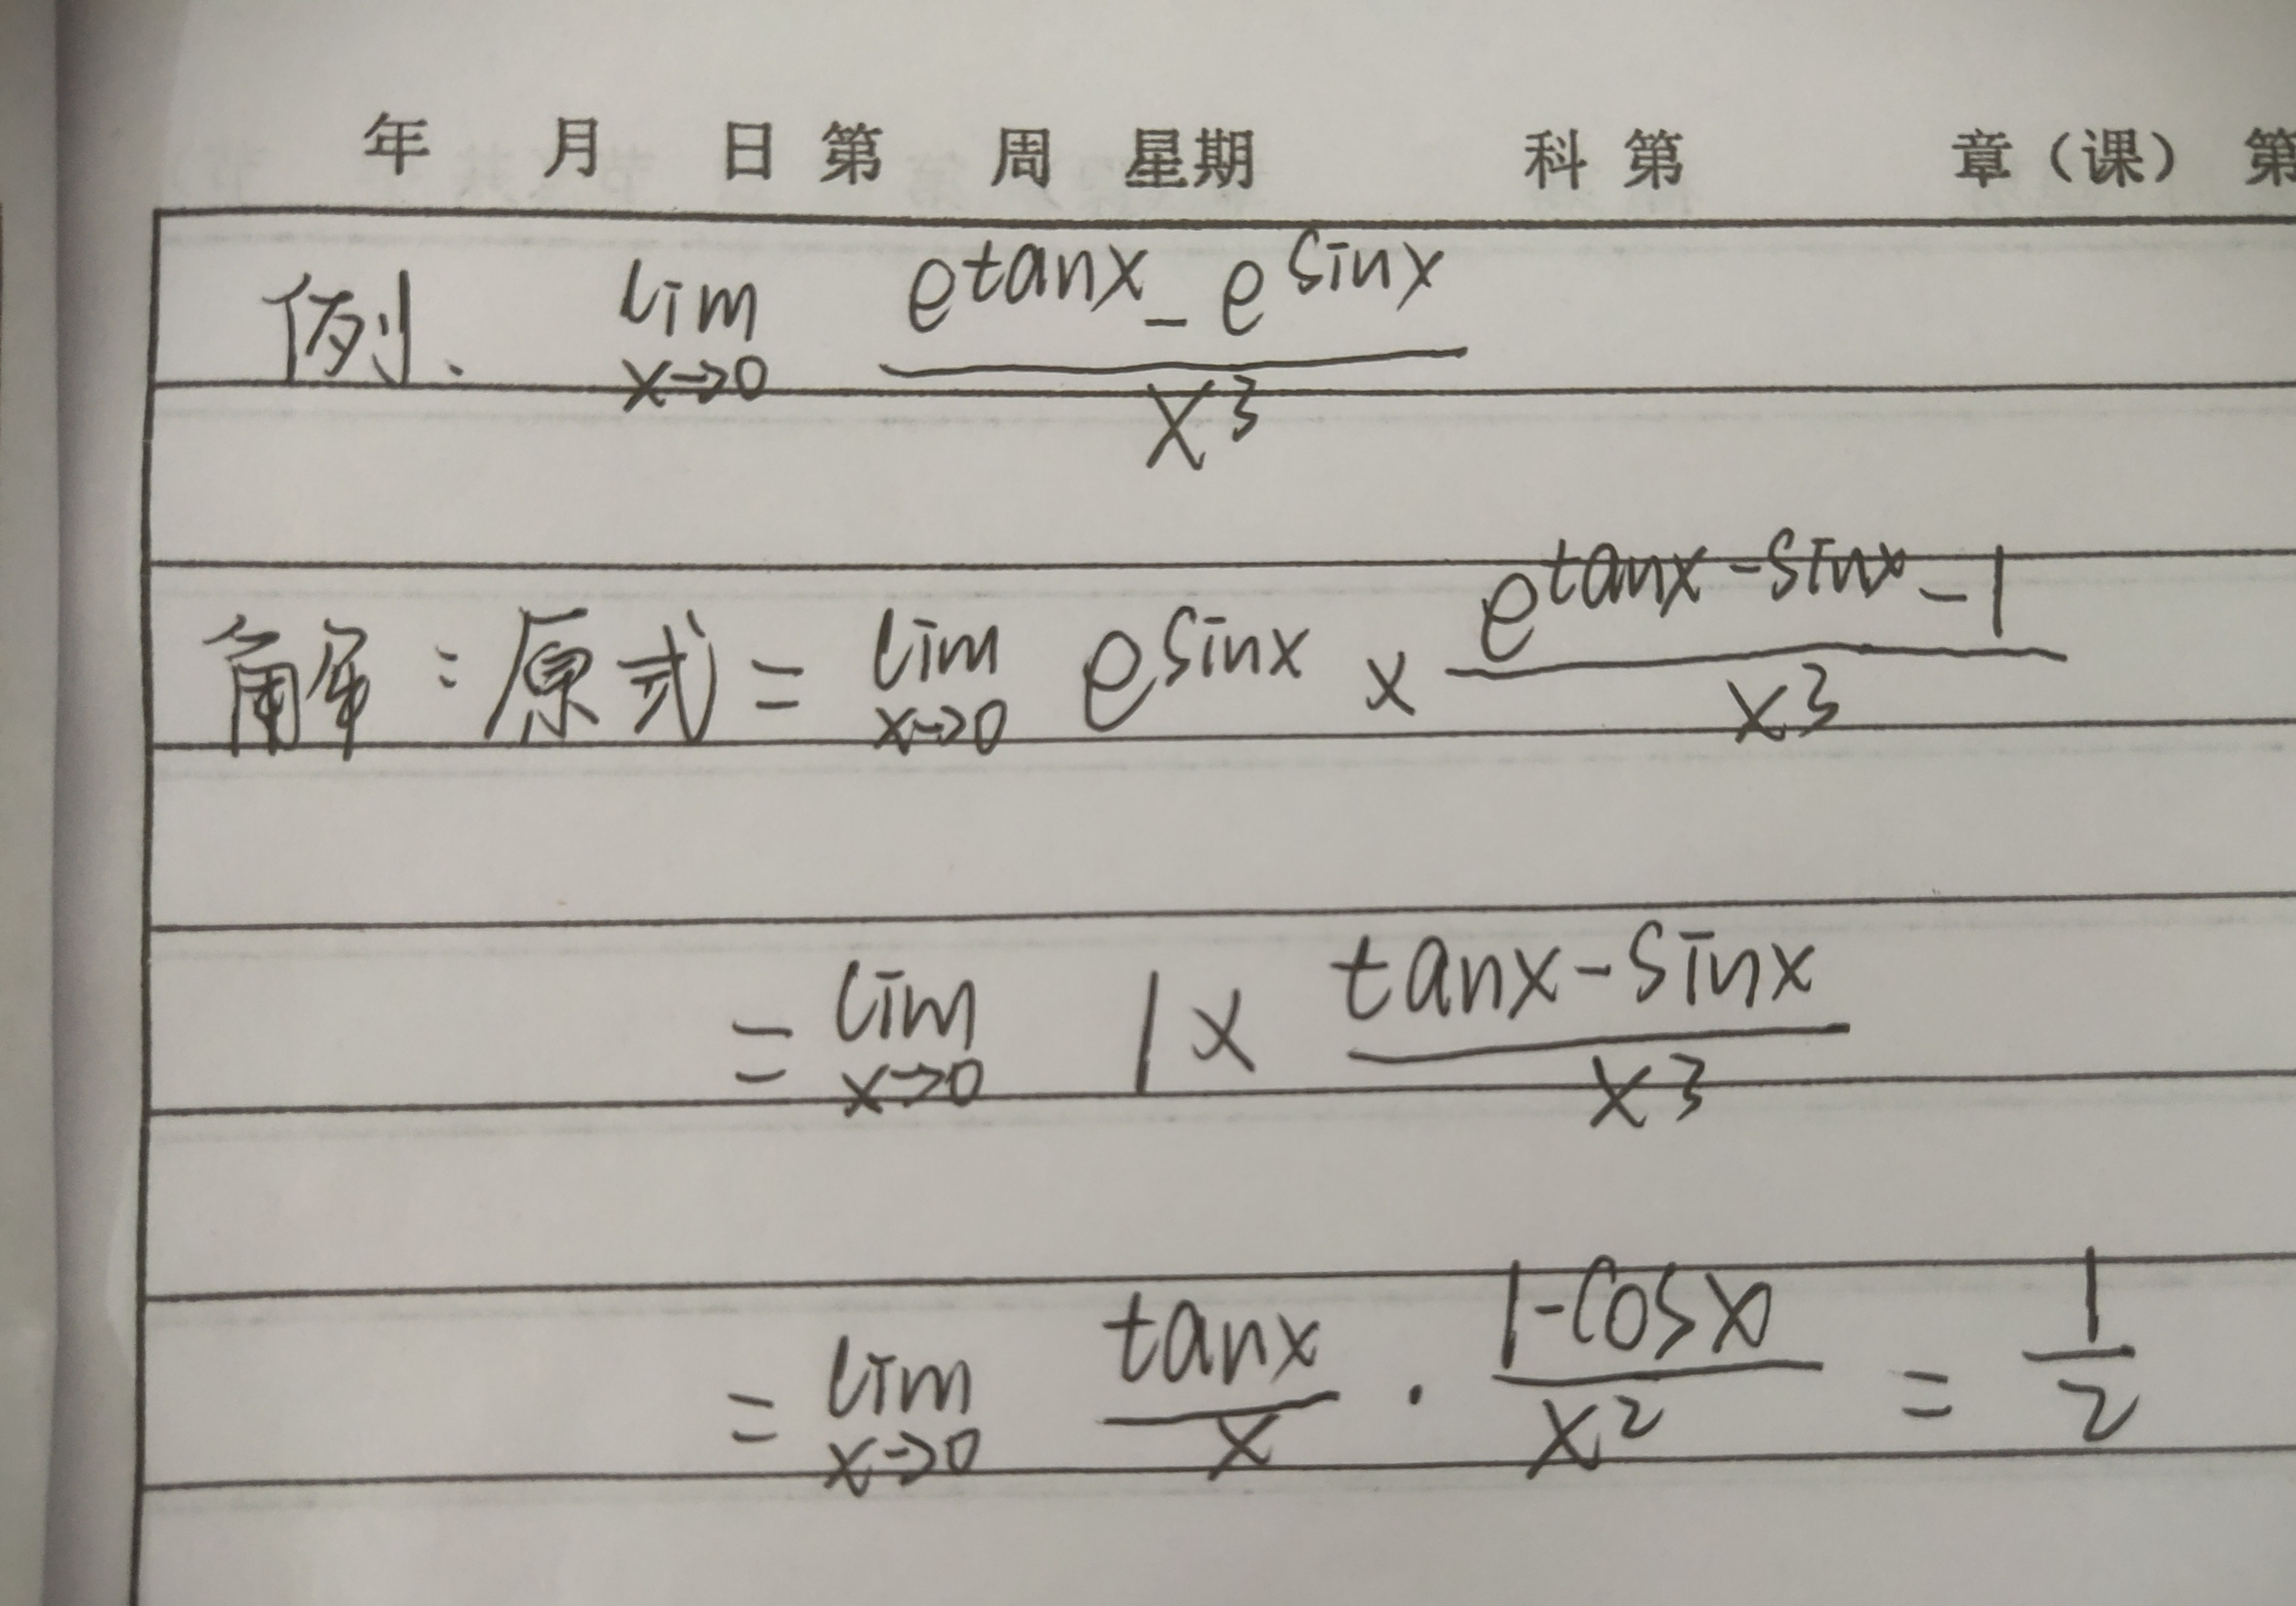 年 月 日 第 周 星期 科 第 章（课） 第
例、 lim x→0 (e^tanx - e^sinx)/x^3
解：原式 = lim x→0 e^sinx × (e^tanx-sinx - 1)/x^3
= lim x→0 1 × (tanx - sinx)/x^3
= lim x→0 tanx/x · (1-cosx)/x^2 = 1/2